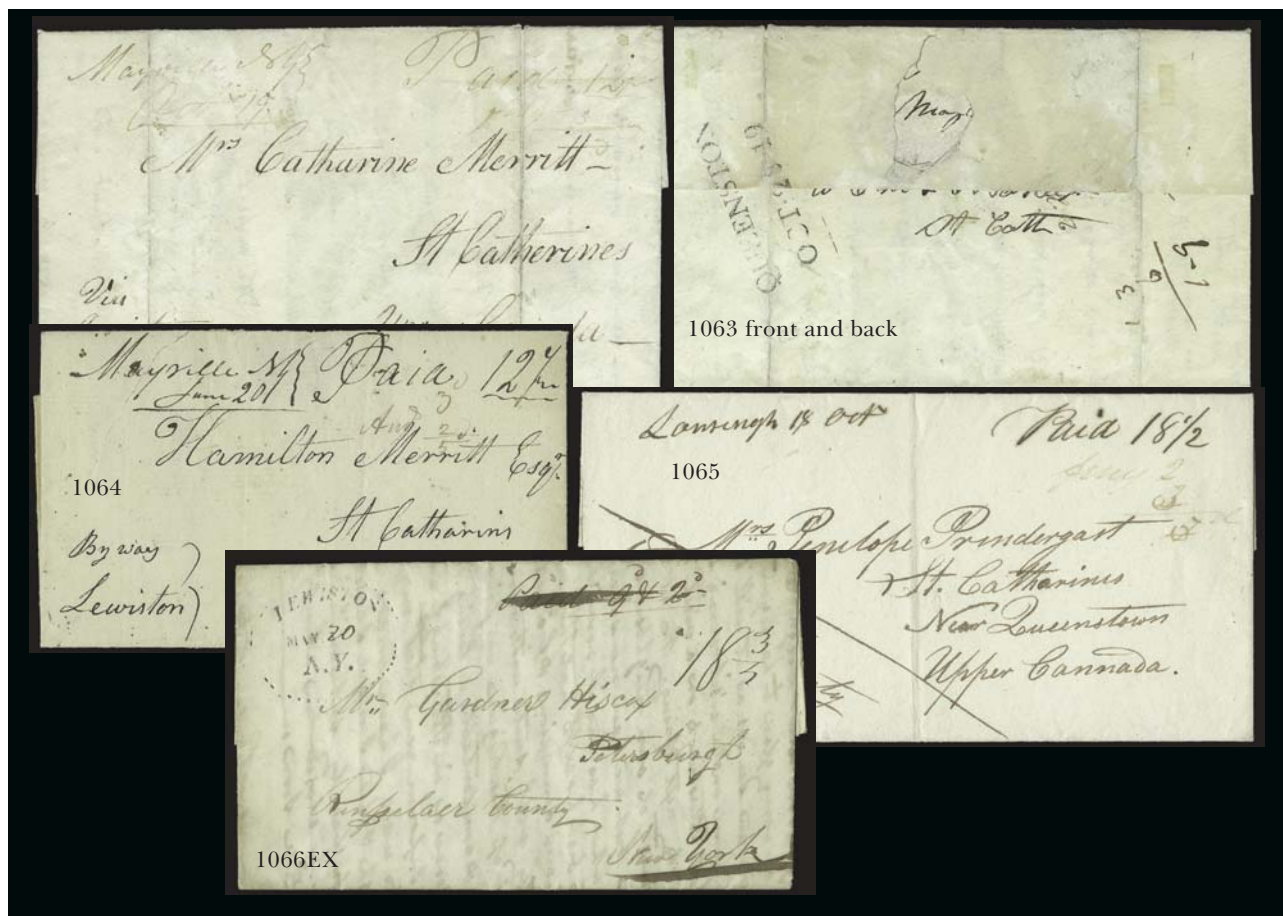 Mayville NY
Paid 12½
Mrs Catharine Merritt
St Catherines
Via
Map
St Cath
QUEENSTON
OCT. 28 1819
1063 front and back
Mayville NY Paid 12½
June 20
Hamilton Merritt Esqr
St Catharins
By way
Lewiston
1064
Lansingh 18 Oct Paid 18½
1065
Mrs Penelope Prindergast
St. Catharines
Near Queenstown
Upper Cannada.
LEWISTON
MAY 20
N.Y.
Paid 9d & 2d
18¾
Mr Gardner Hiscox
Petersburgh
Rensselaer County
New York
1066EX